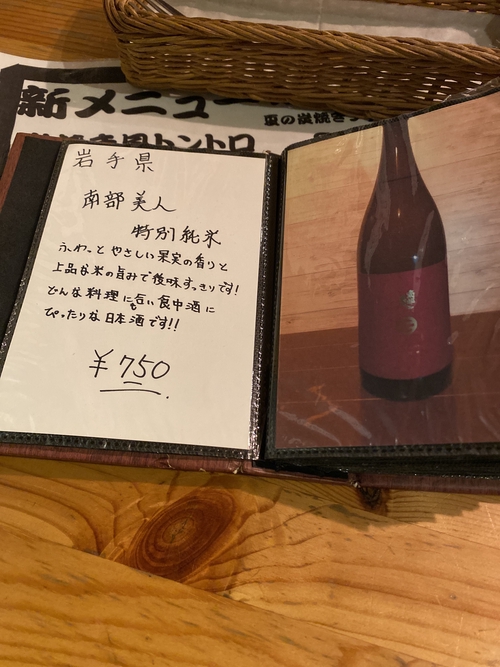 新メニュー
岩手県
南部美人
特別純米
ふわっとやさしい果実の香りと
上品な米の旨みで後味すっきりです!
どんな料理にも合い食中酒に
ぴったりな日本酒です!!
¥750